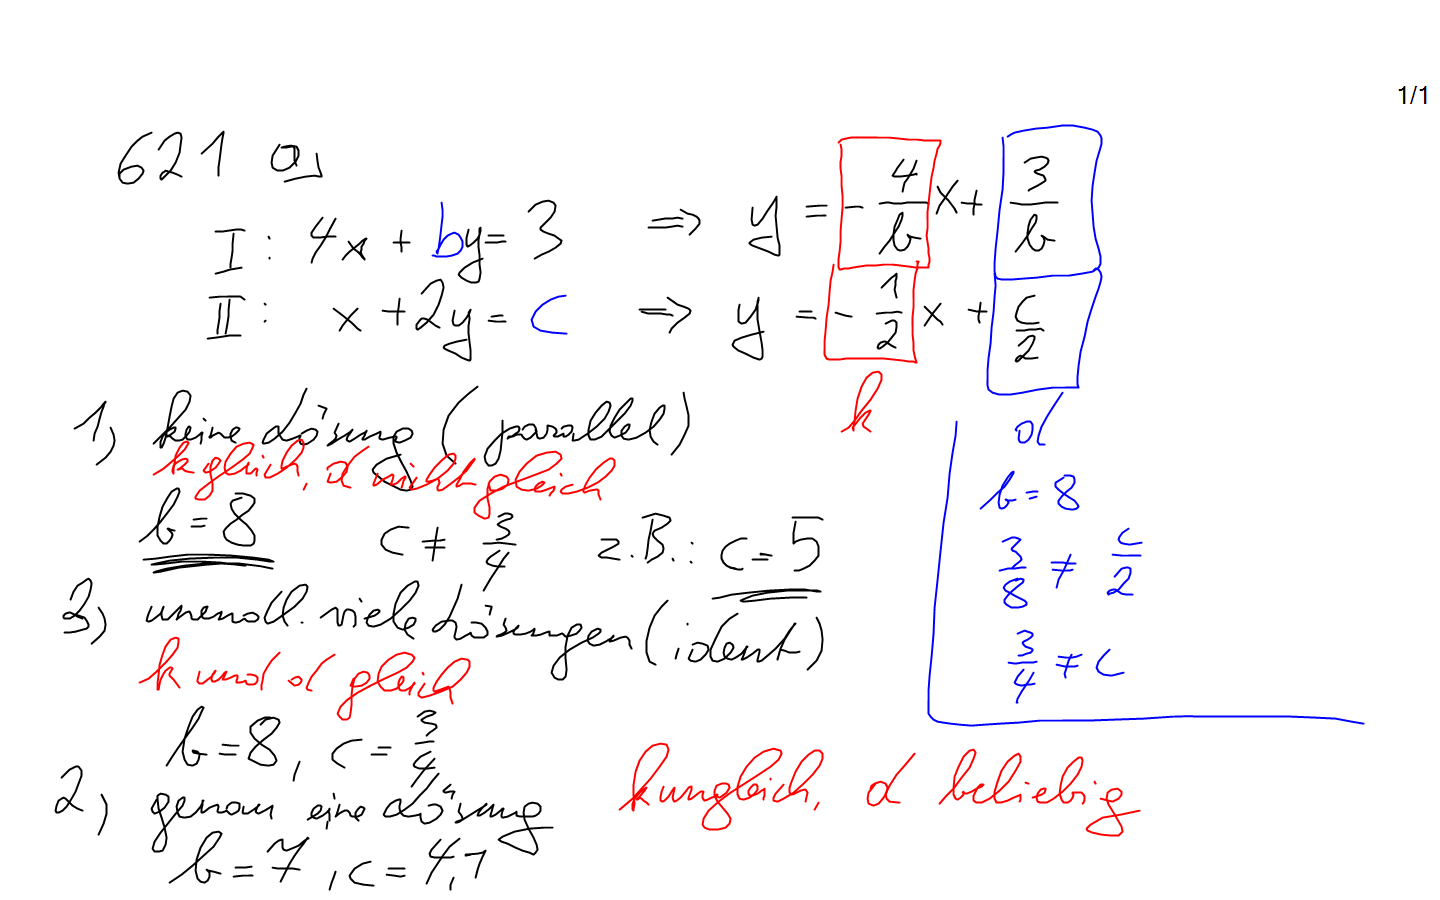 1/1
621 a)
I: 4x + by = 3 ⇒ y = - 4/b x + 3/b
II: x + 2y = c ⇒ y = - 1/2 x + c/2
k d
1) keine Lösung (parallel)
k gleich, d nicht gleich
b = 8 c ≠ 3/4 z.B.: c = 5
b = 8
3/8 ≠ c/2
3/4 ≠ c
3) unendl. viele Lösungen (ident)
k und d gleich
b = 8, c = 3/4
2) genau eine Lösung k ungleich, d beliebig
b = 7, c = 4,1